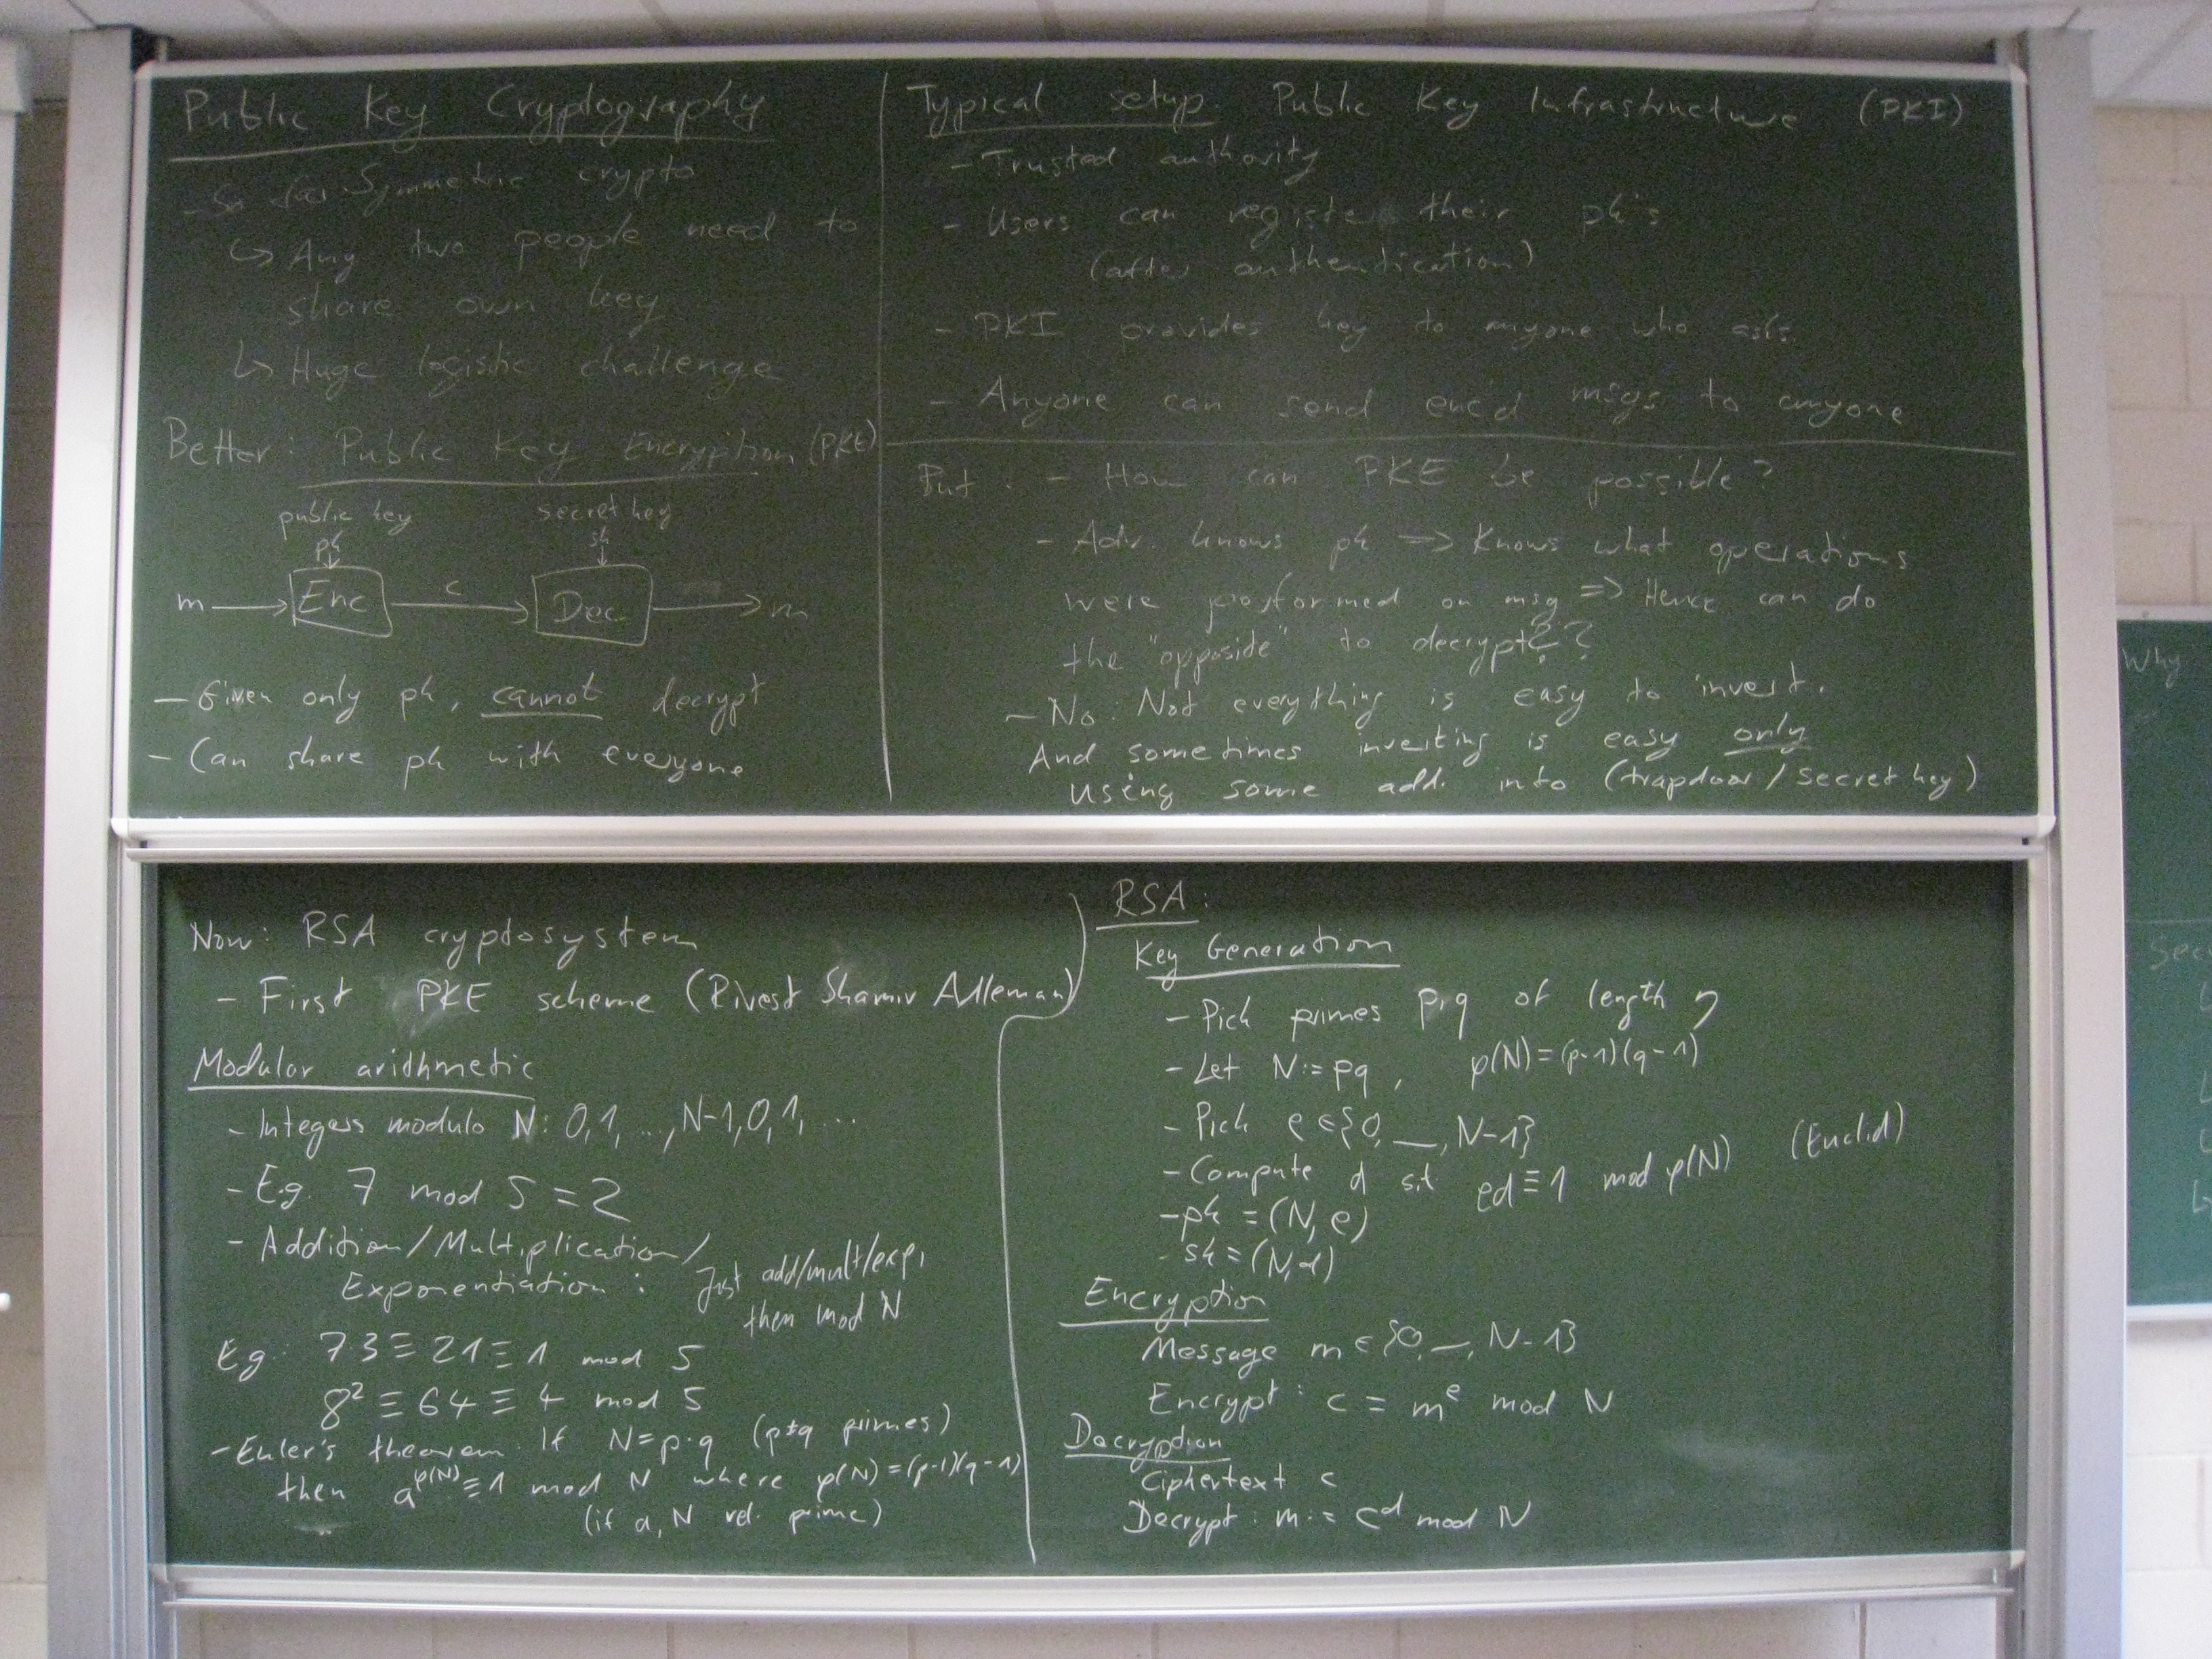 Public Key Cryptography
- So far: Symmetric crypto
↳ Any two people need to
share own key
↳ Huge logistic challenge
Better: Public Key Encryption (PKE)
public key
pk
secret key
sk
m → Enc c → Dec → m
- Given only pk, cannot decrypt
- Can share pk with everyone
Typical setup: Public Key Infrastructure (PKI)
- Trusted authority
- Users can register their pk's
(after authentication)
- PKI provides key to anyone who asks.
- Anyone can send enc'd msgs to anyone
But: - How can PKE be possible?
- Adv. knows pk => Knows what operations
were performed on msg => Hence can do
the "opposide" to decrypt??
- No: Not everything is easy to invert.
And sometimes inverting is easy only
using some add. info (trapdoor/secret key)
Now: RSA cryptosystem
- First PKE scheme (Rivest Shamir Adleman)
Modular arithmetic
- Integers modulo N: 0,1, ..., N-1, 0, 1, ...
- E.g. 7 mod 5 = 2
- Addition/Multiplication/
Exponentiation: Just add/mult/exp,
then mod N
Eg: 7·3 ≡ 21 ≡ 1 mod 5
8² ≡ 64 ≡ 4 mod 5
- Euler's theorem: If N=p·q (p≠q primes)
then a^φ(N) ≡ 1 mod N where φ(N)=(p-1)(q-1)
(if a, N rel. prime)
RSA:
Key Generation
- Pick primes p,q of length η
- Let N:=pq, φ(N)=(p-1)(q-1)
- Pick e∈{0, —, N-1}
- Compute d s.t ed≡1 mod φ(N) (Euclid)
- pk = (N, e)
- sk = (N, d)
Encryption
Message m∈{0, —, N-1}
Encrypt: c = m^e mod N
Decryption
Ciphertext c
Decrypt: m := c^d mod N
Why